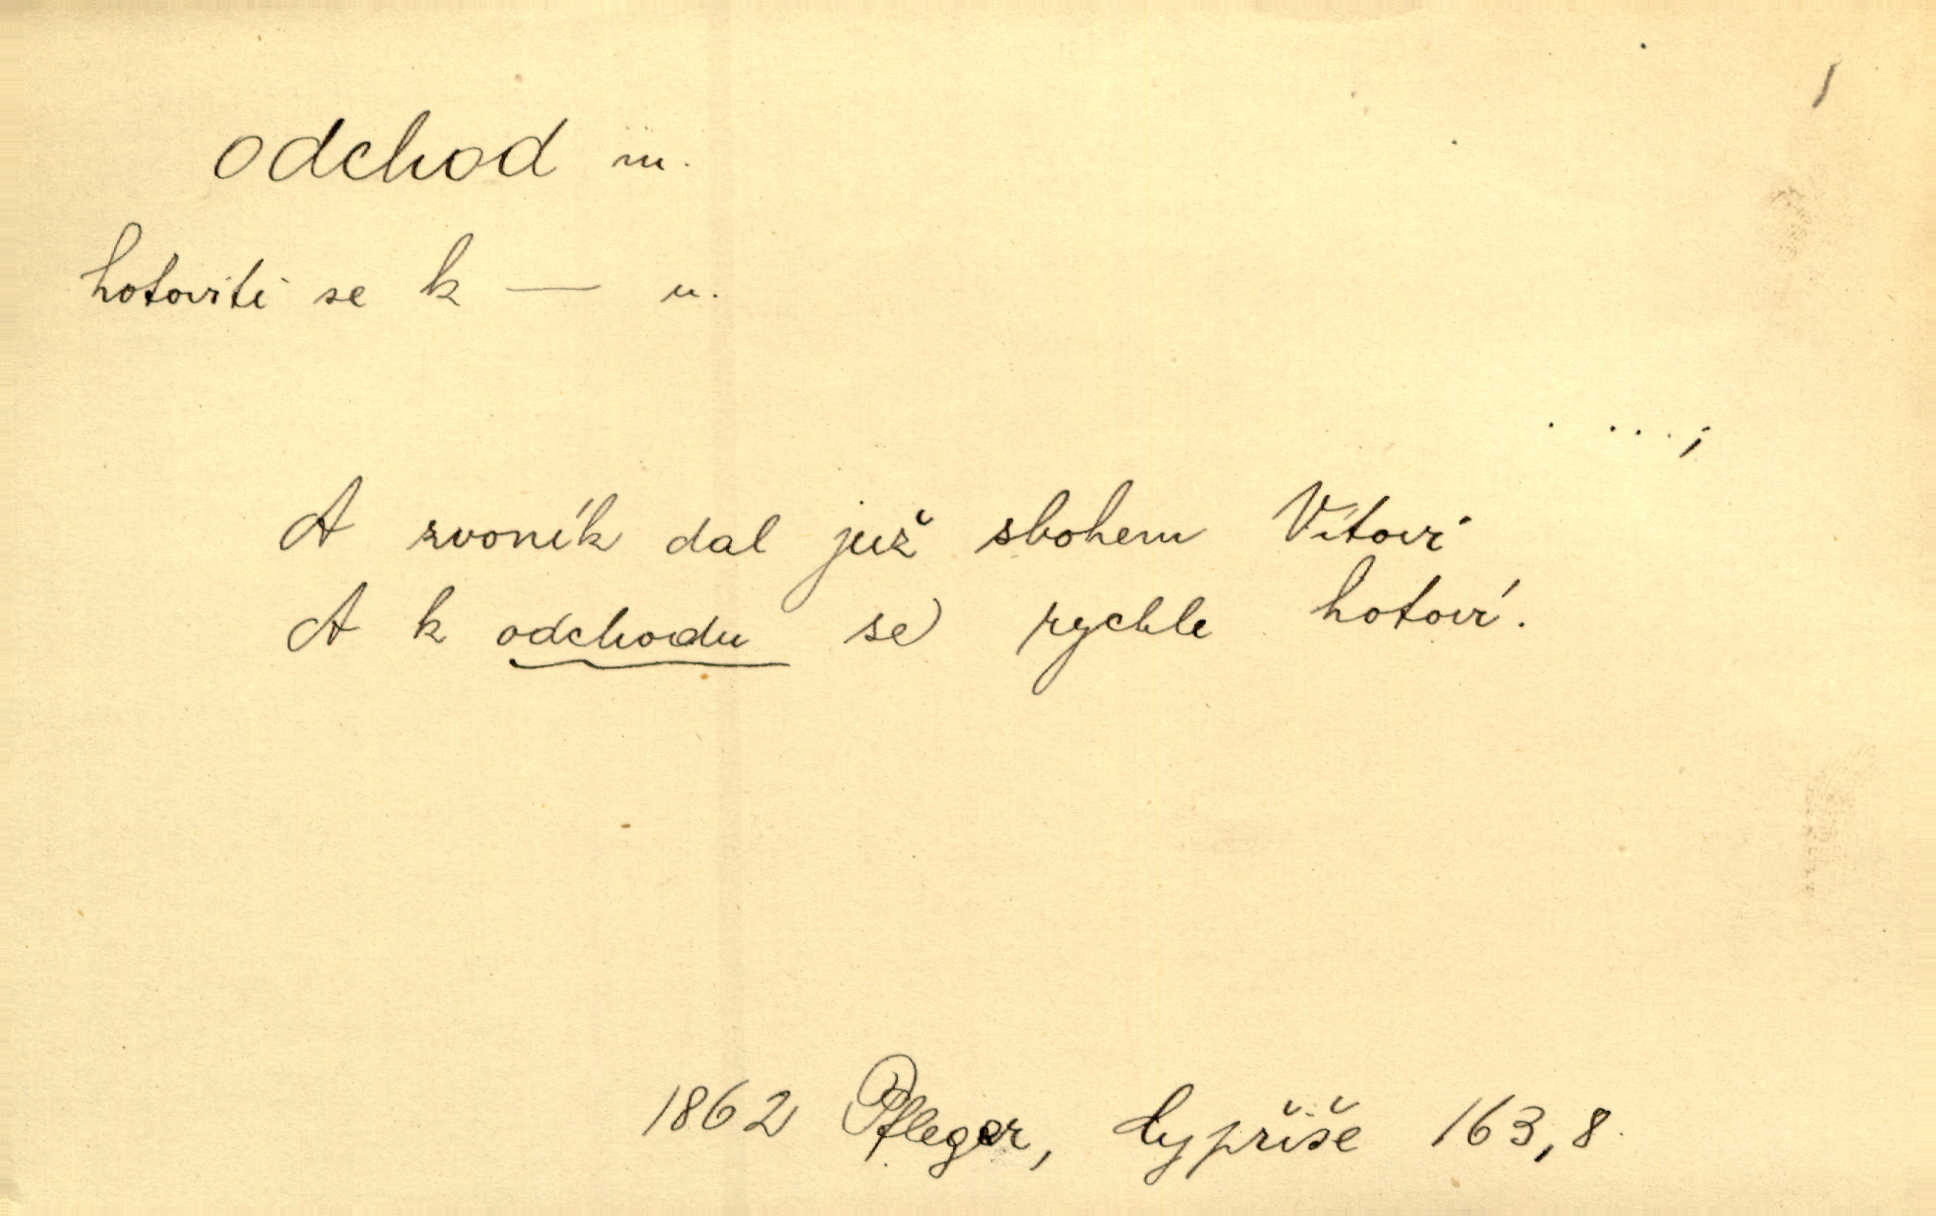 odchod m.
hotoviti se k — u.
. ...;
A zvoník dal již sbohem Vítovi
A k odchodu se rychle hotoví.
1862 Pfleger, Cypřiše 163,8